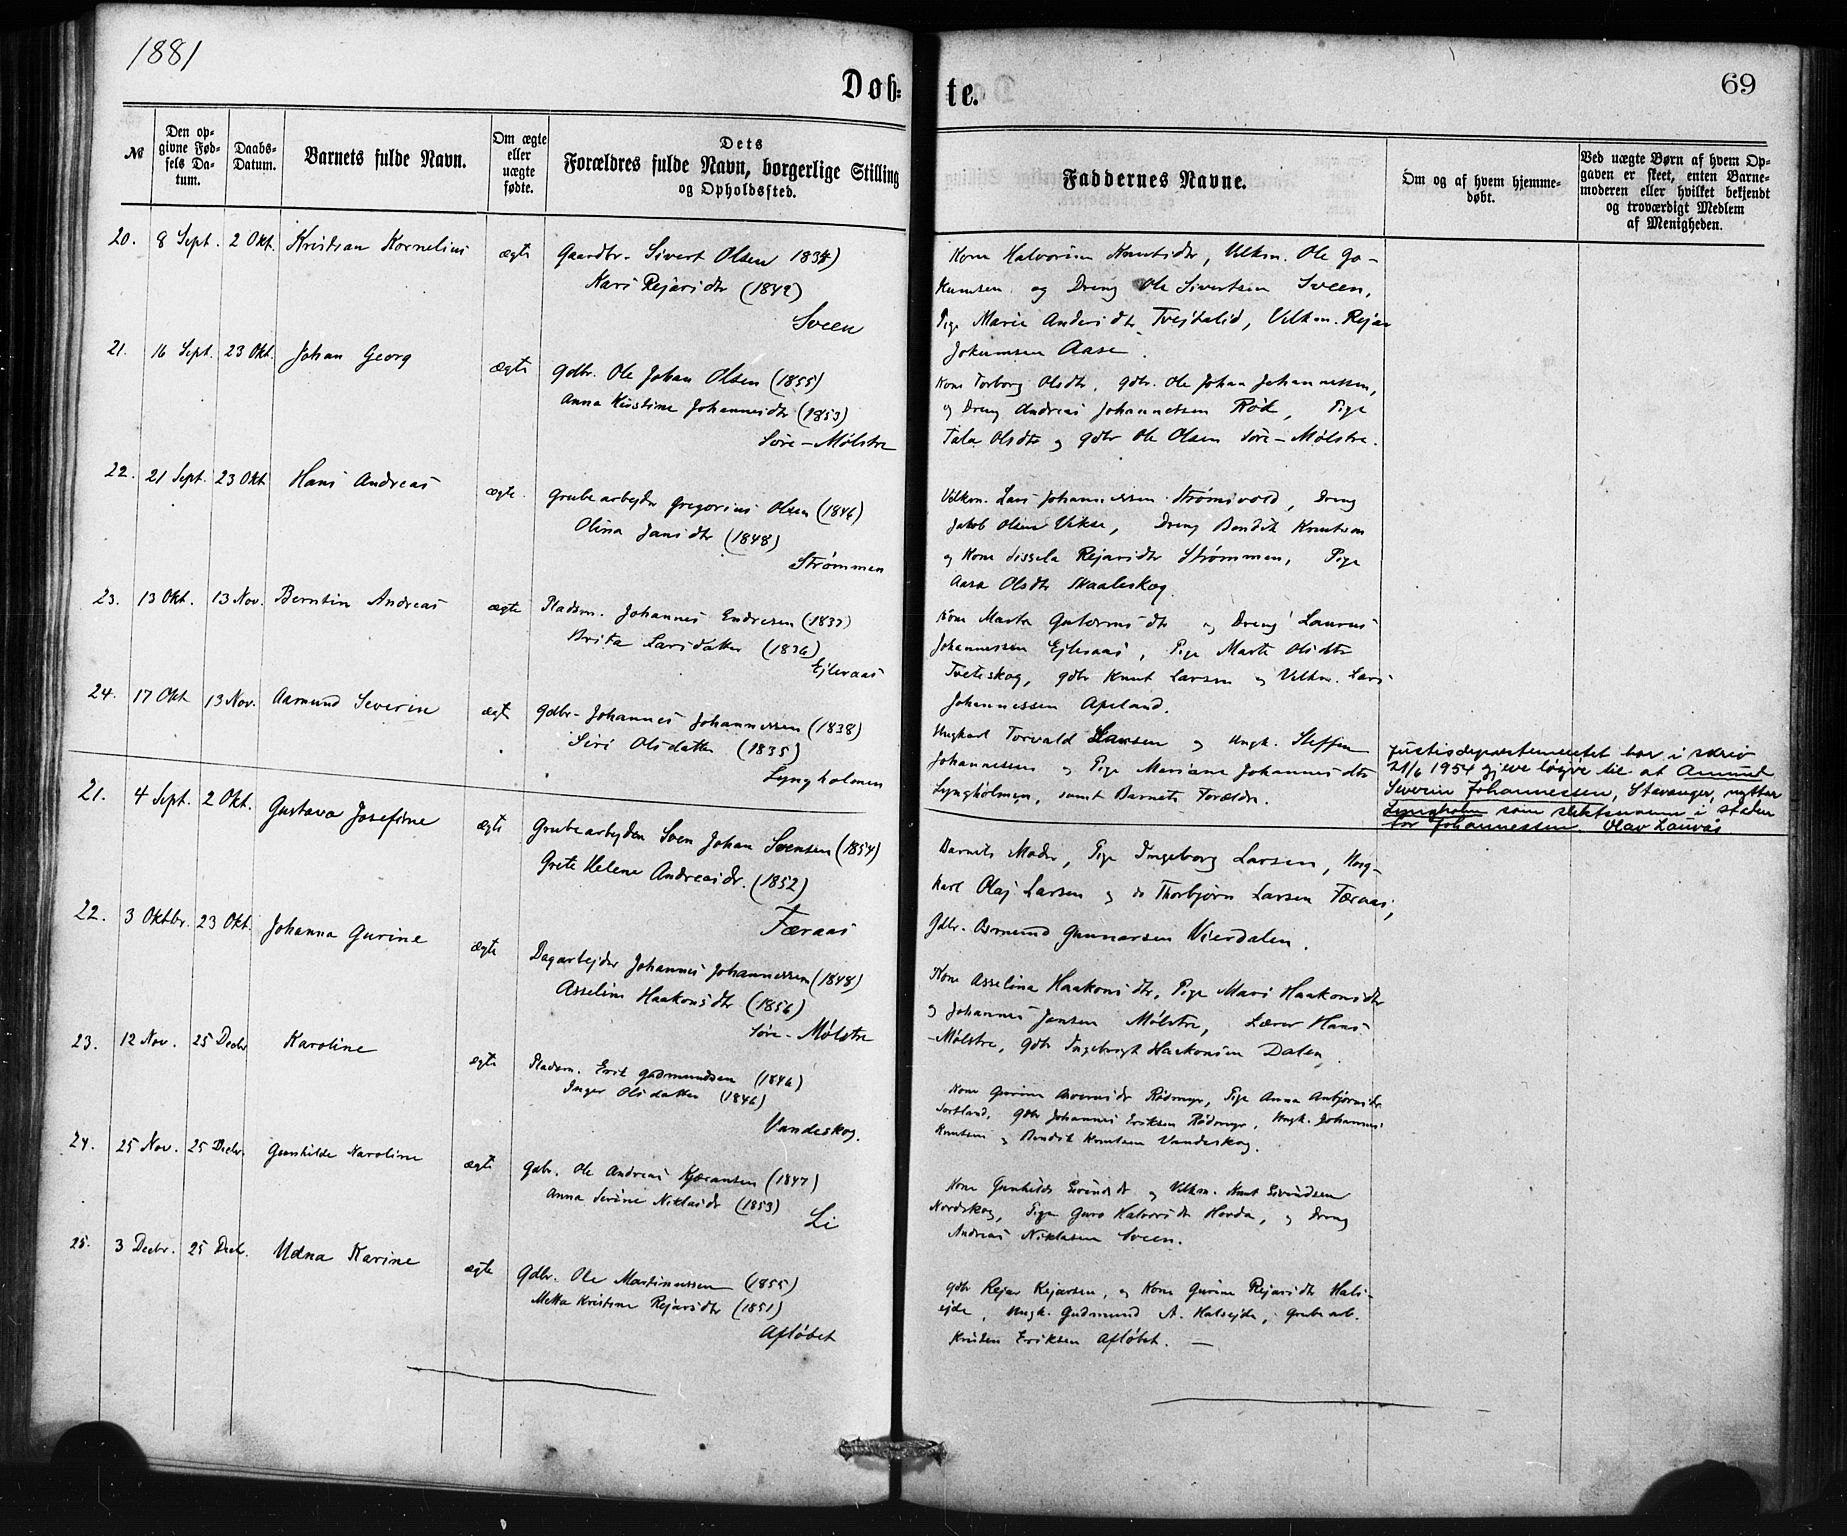 1881
Døb-
te.
69
№
Den op-
givne Fød-
sels Da-
tum.
Daabs-
Datum.
Barnets fulde Navn.
Om ægte
eller
uægte
fødte.
Dets
Forældres fulde Navn, borgerlige Stilling
og Opholdssted.
Faddernes Navne.
Om og af hvem hjemme-
døbt.
Ved uægte Børn af hvem Op-
gaven er skeet, enten Barne-
moderen eller hvilket bekjendt
og troværdigt Medlem
af Menigheden.
20. 8 Sept. 2 Okt. Kristian Kornelius ægte Gaardbr. Sivert Olsen
Kari Rejarsdtr (1842)
Sveen
Kone Halvorine Knutsdtr, Velkm. Ole Jo-
kumsen og Dreng Ole Sivertsen Sveen,
Pige Marie Andersdtr Tvejtalid, Velkm. Rejar
Jokumsen Aase.
21. 16 Sept. 23 Okt. Johan Georg ægte Gdbr. Ole Johan Olsen (1855)
Anna Kristine Johannesdtr (1853)
Søre-Mølstre
Kone Torborg Olsdtr, Gdbr. Ole Johan Johannessen,
og Dreng Andreas Johannessen Rød, Pige
Tala Olsdtr og Gdbr Ole Olsen Søre-Mølstre.
22. 21 Sept. 23 Okt. Hans Andreas ægte. Grubearbejder Gregorius Olsen (1846)
Olina Jansdtr (1848)
Strømmen
Velkm. Lars Johannessen Strømsvold, Dreng
Jakob Olsen Vikse, Dreng Bendik Knutsen
og Kone Sissela Rejarsdtr Strømmen, Pige
Aasa Olsdtr Skaaleskog.
23. 13 Okt. 13 Nov. Berntin Andreas ægte Pladsm. Johannes Endresen (1837)
Brita Larsdatter (1836)
Ejleraas
Kone Marta Gutormsdtr og Dreng Laurus
Johannessen Ejleraas, Pige Marte Olsdtr
Tveteskog, Gdbr Knut Larsen og Velkm. Lars
Johannessen Apeland.
24. 17 Okt 13 Nov. Aamund Severin ægt Gdbr. Johannes Johannessen (1838)
Siri Olsdatter (1835)
Lyngholmen
Ungkarl Torvald Larsen og Ungk. Steffen
Johannessen og Pige Mariane Johannesdtr
Lyngholmen, samt Barnets Forældre.
Justisdepartementet har i skriv
21/6 1954 gjeve løyve til at Amund
Severin Johannessen, Stavanger, nyttar
Lyngholm som slektsnamn i staden
for Johannessen. Olav Lauvås
21. 4 Sept. 2 Okt. Gustava Josefine ægte Grubearbejder Sven Johan Svensen (1854)
Grete Helene Andreasdr. (1852)
Færaas
Barnets Moder, Pige Ingeborg Larsen, Ung-
karl Olaj Larsen og do Thorbjørn Larsen Færaas,
Gdbr. Gunnarsen Vierdalen.
22. 3 Oktbr. 23 Okt. Johanna Gurine ægte Dagarbejder Johannes Johannessen (1848)
Asseline Haakonsdtr (1856)
Søre-Mølstre
Kone Asselina Haakonsdtr, Pige Mari Haakonsdtr
og Johannes Jansen Mølstre, Lærer Hans
Mølstre, Gdbr Ingebrigt Haakonsen Dalen.
23. 12 Nov. 25 Decbr Karoline ægte Pladsm. Erik Gudmundsen (1846)
Inger Olsdatter (1846)
Vandeskog.
Kone Gurine Rødmyr, Pige Anna Anbjørnsdr
Sortland, Gdbr Johannes Eriksen Rødmyr, Ungk. Johannes
Knutsen og Bendik Knutsen Vandeskog.
24. 25 Nov. 25 Decbr. Gunhilde Karoline ægte Gdbr. Ole Andreas Kjeransen (1847)
Anna Serine Niklasdr (1853)
Li
Kone Gunhilde og Velkm. Knut
Nordskog, Pige Guro Halvorsdr Hovda, og Dreng
Andreas Niklasen Sveen.
25. 3 Decbr. 25 Decb. Udna Karine ægte Gdbr. Ole Martinussen (1855)
Metta Kristine Rejarsdtr (1851)
Afløbet
Gdbr Rejar Rejarsen, og Kone Gurine Rejarsdtr Hals-
ejde, Ungk. Gudmund A. Halsejde, Grubearb.
Knuten Eriksen Afløbet. —